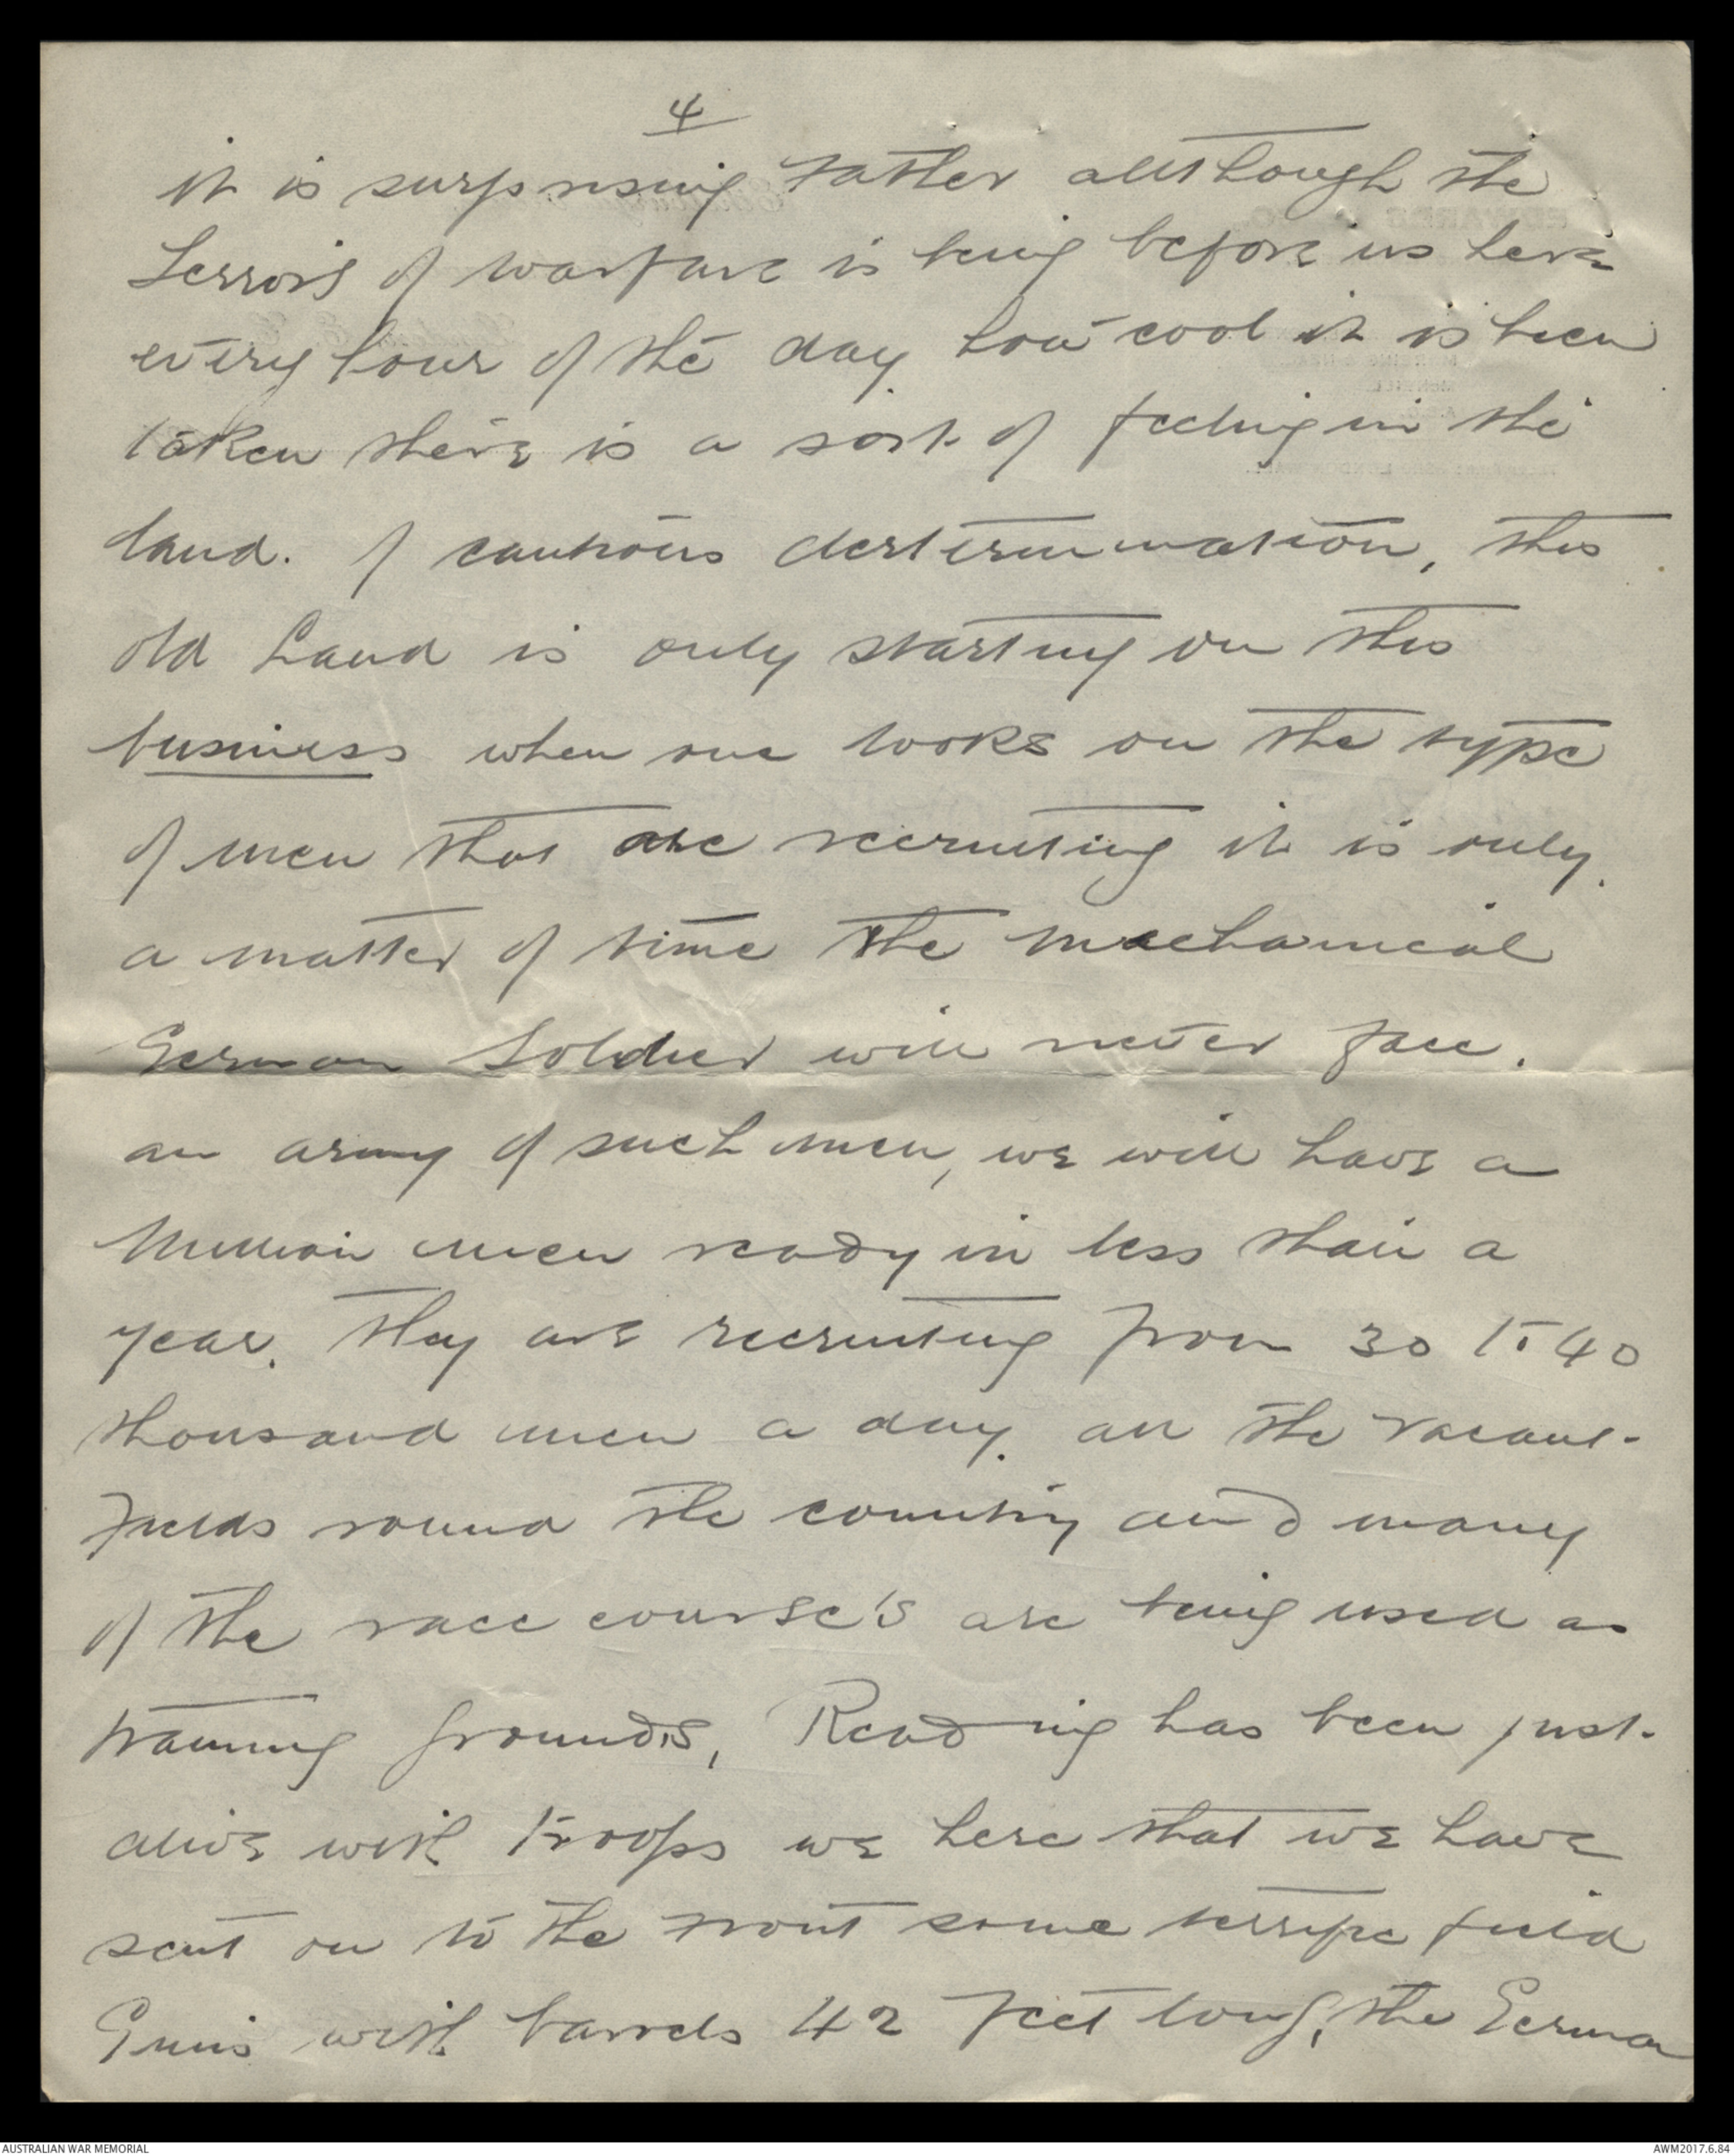 4
it is surprising Father although the
Terrors of warfare is being before us here
every hour of the day how cool it is been
taken there is a sort of feeling in the
land. of cautious desterumination, this
old Land is only starting on this
business when one looks on the type
of men that are recruiting it is only.
a matter of time the mechanical
German Soldier will never face.
an army of such men, we will have a
Million men ready in less than a
year. They are recruiting from 30 to 40
thousand men a day. all the vacant
fields round the country and many
of the race course's are being used as
training grounds, Reading has been just
alive with troops we here that we have
sent on to the front some terrific field
Guns with barrels 42 feet long, the German
AUSTRALIAN WAR MEMORIAL
AWM2017.6.84